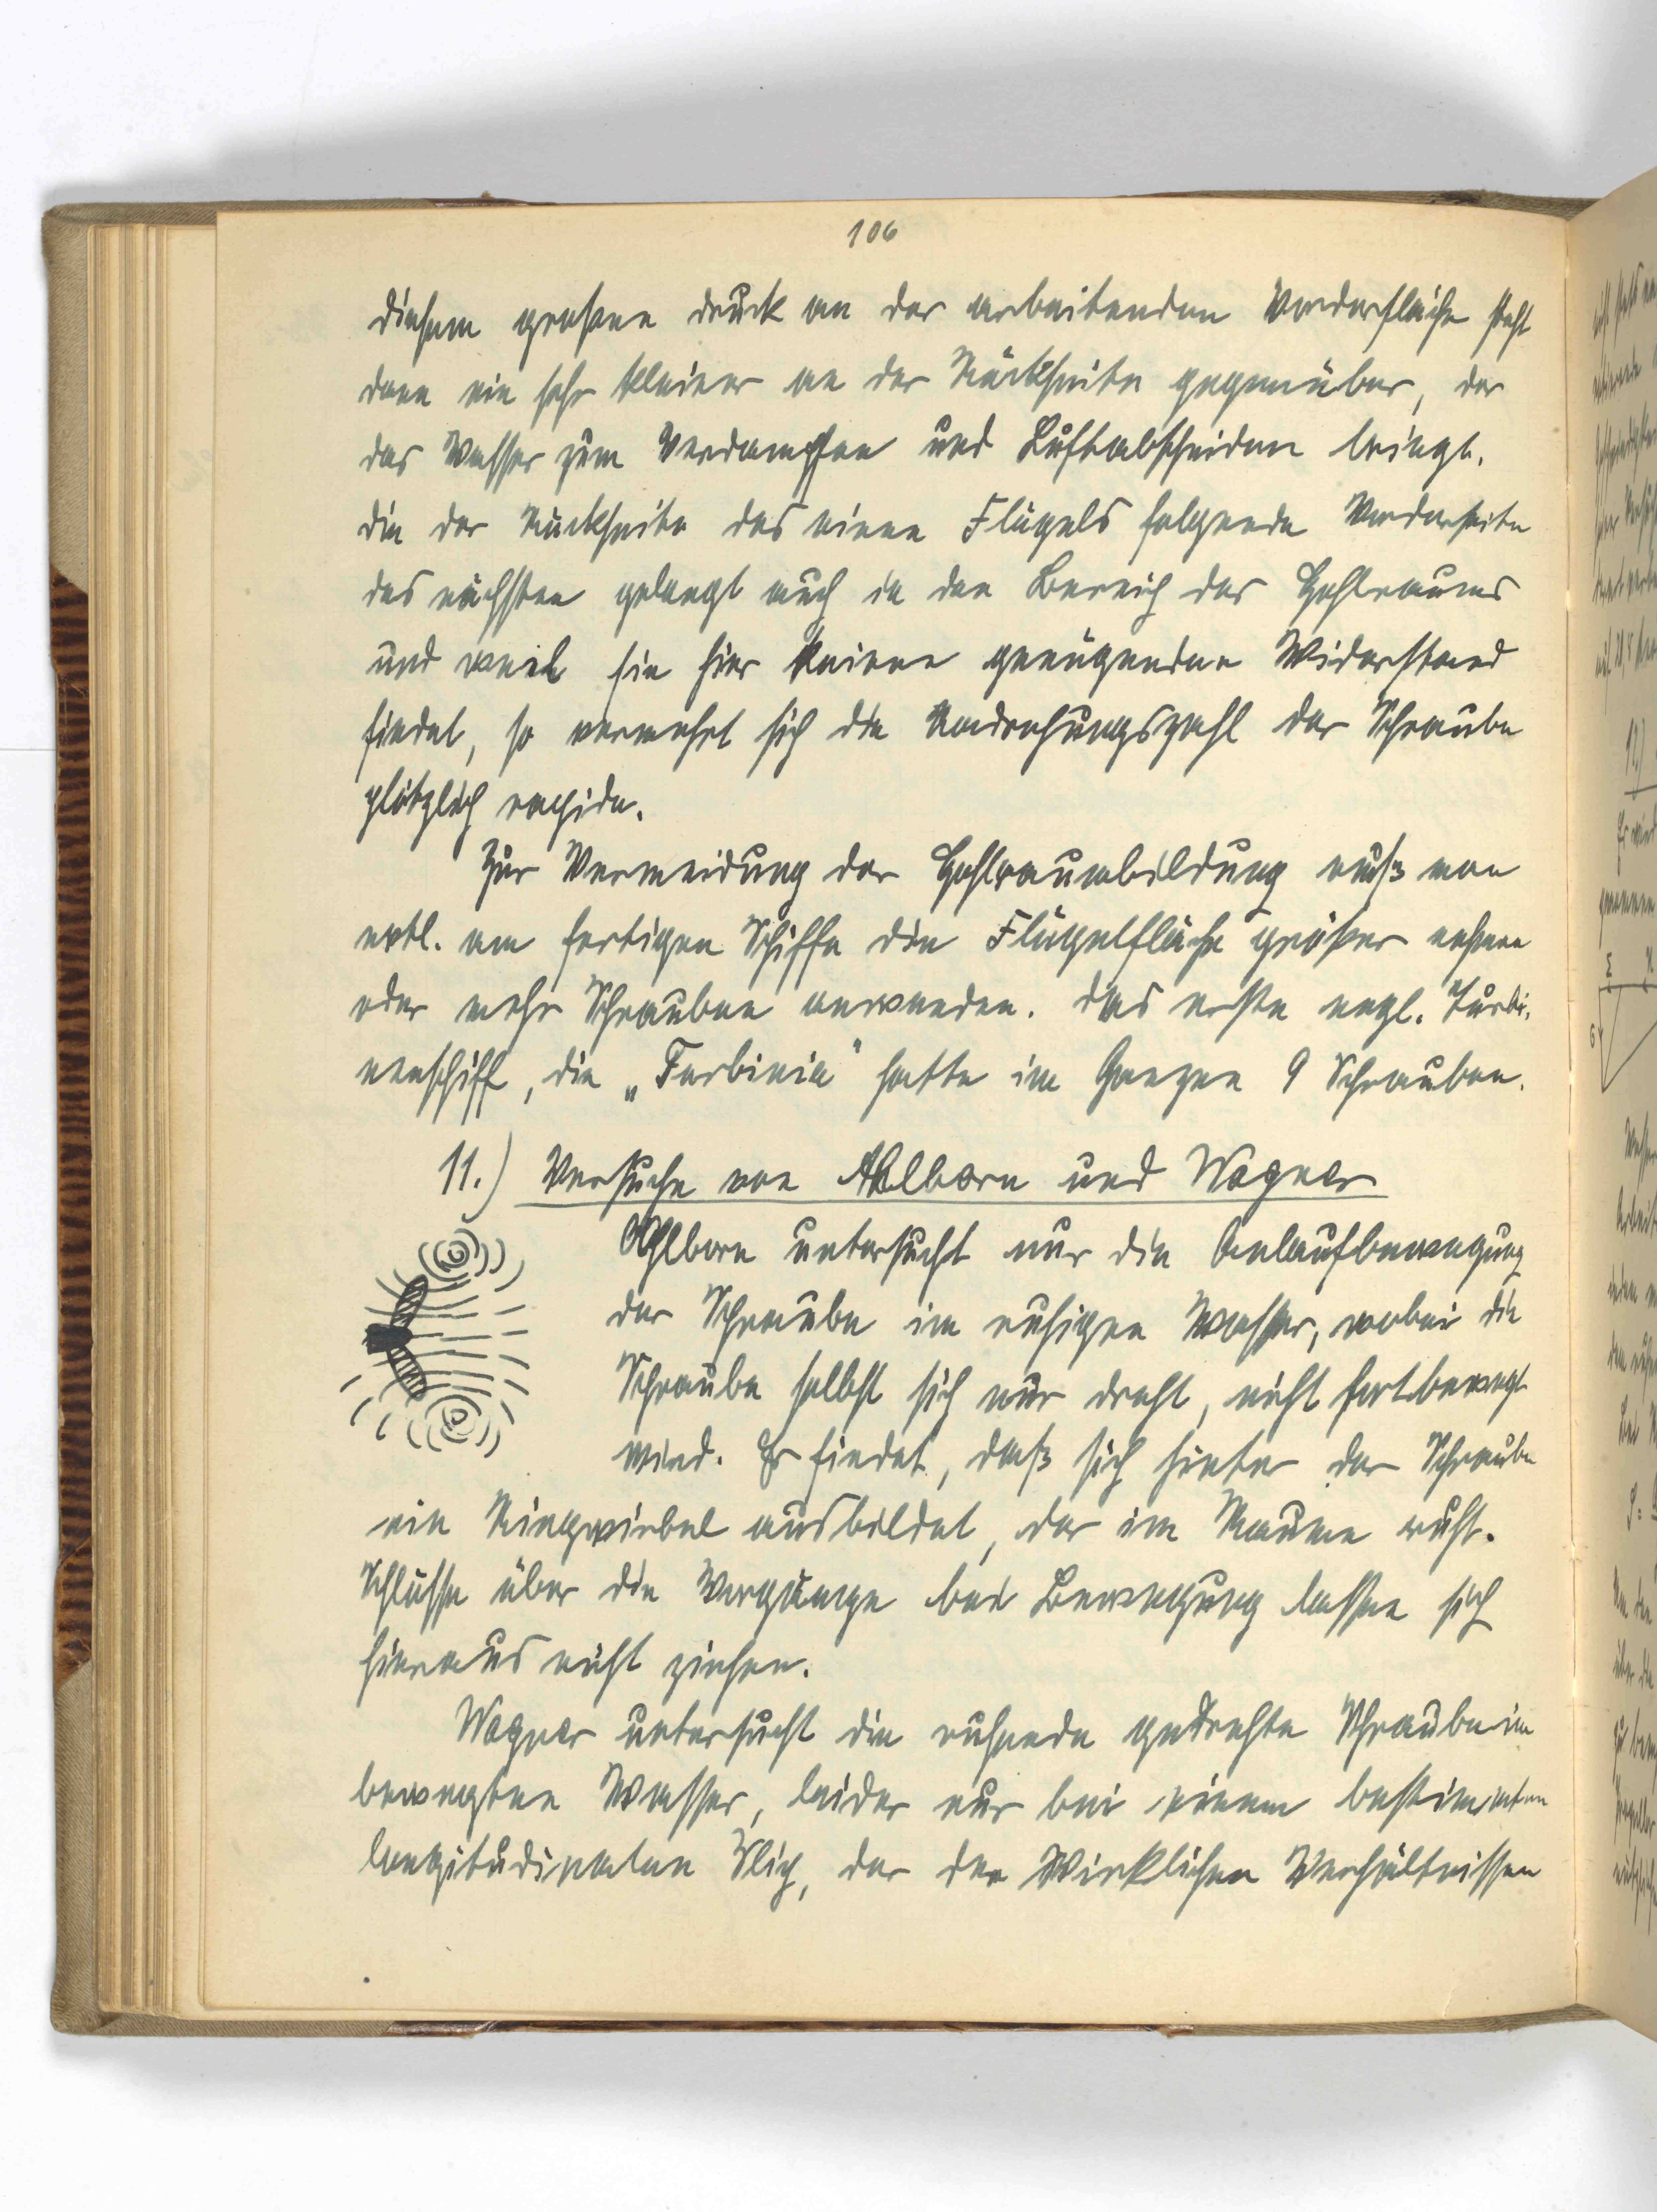 106
diesem großen Druck an der arbeitenden Vorderfläche steht
dann ein sehr kleiner an der Rückseite gegenüber, der
das Wasser zum Verdampfen und Luftabscheiden bringt.
Die der Rückseite des einen Flügels folgende Vorderseite
des nächsten gelangt auch in den Bereich des Hohlraums
und weil sie hier keinen genügenden Widerstand
findet, so vermehrt sich die Umdrehungszahl der Schraube
plötzlich rapide.
Zur Vermeidung der Hohlraumbildung muß man
evtl. am fertigen Schiffe die Flügelfläche größer nehmen
oder mehr Schrauben anwenden. Das erste engl. Turbi-
nenschiff, die „Turbinia" hatte im Ganzen 9 Schrauben.
11.) Versuche von Ahlborn und Wagner
Ahlborn untersucht nur die Anlaufbewegung
der Schraube im ruhigen Wasser, wobei die
Schraube selbst sich nur dreht, nicht fortbewegt
wird. Er findet, daß sich hinter der Schraube
ein Ringwirbel ausbildet, der im Raume ruht.
Schlüsse über die Vorgänge bei Bewegung lassen sich
hieraus nicht ziehen.
Wagner untersucht die ruhende gedrehte Schraube im
bewegten Wasser, leider nur bei einem bestimmten
longitudinalen Slip, der den Wirklichen Verhältnissen